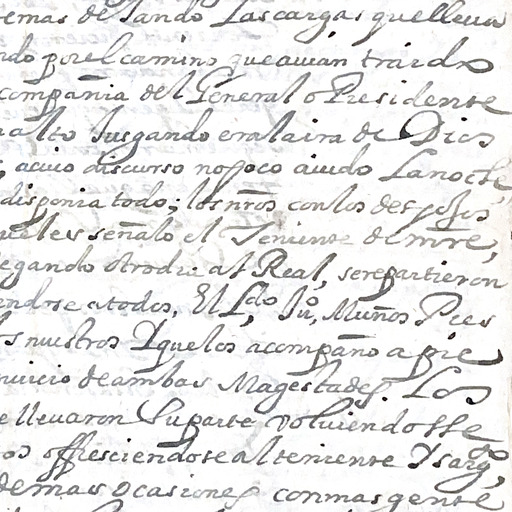 emas desando Lascargas quelleua
ndo porel camino queauian traido
compañia del General o Presidente
alto Jusgando eralaira de Dios
; acuio discurso nopoco aiudo Lanoche,
disponia todo; los nrõs conlos despojos
queles señalo el Teniente de mrẽ,
egando otrodia al Real, serepartieron
endose atodos, El Lᵈᵒ, Juº, Muños Pies
s nuestros Yquelos acompaño apie
nuicio deambas Magestades. Los
e lleuaron Suparte voluiendosse
os offresciendose alteniente Ysargᵗᵒ,
demas ocasiones conmas gente